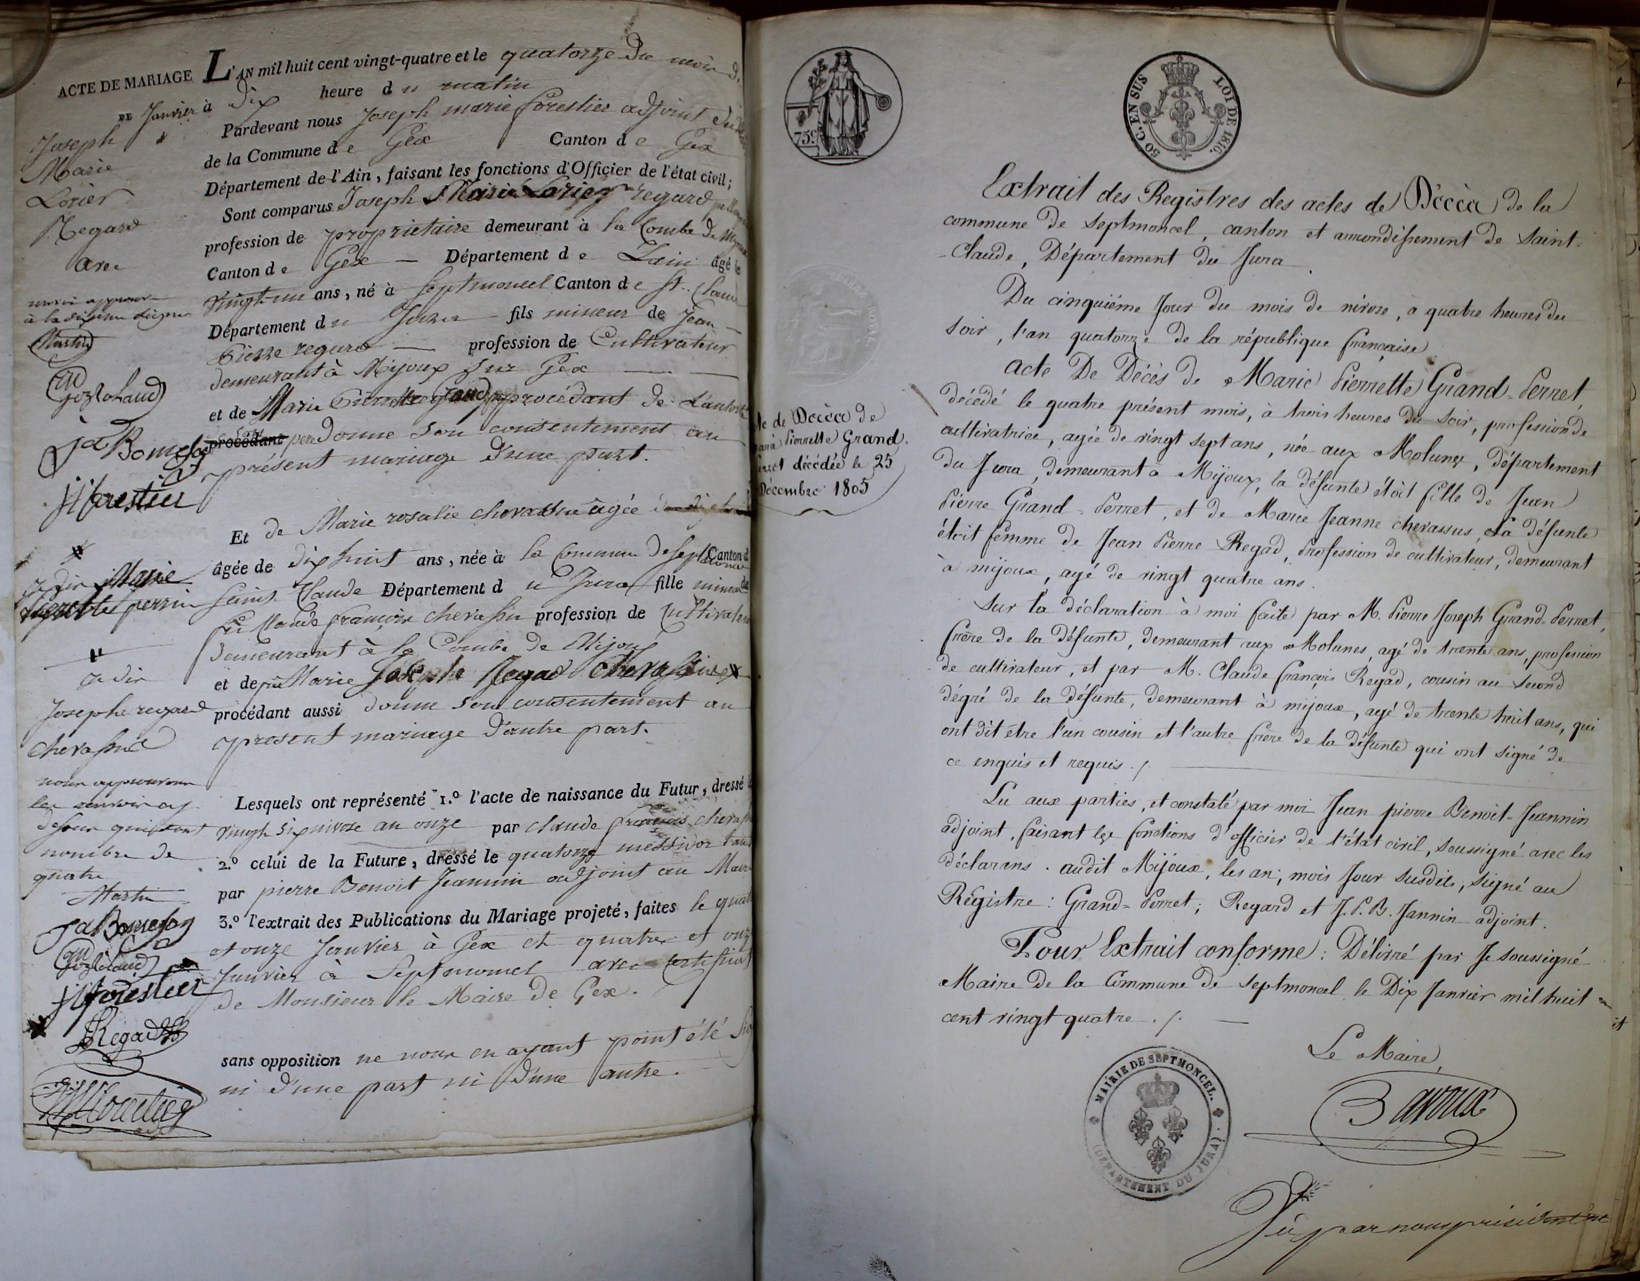 ACTE DE MARIAGE
DE Janvier
Joseph
Marie
Lorier
Regard
avec
L'AN mil huit cent vingt-quatre et le quatorze du mois de
à dix heure du matin
Pardevant nous Joseph marie forestier adjoint
de la Commune de Gex Canton de Gex
Département de l'Ain, faisant les fonctions d'Officier de l'état civil;
Sont comparus Joseph Marie Lorier regard
profession de proprietaire demeurant à la Combe de
Canton de Gex Département de L'ain âgé de
vingt-un ans, né à Septmoncel Canton de St. Claude
Département du Jura fils mineur de Jean
Pierre regard profession de Cultivateur
demeurant à Mijoux sur Gex
et de Marie Pierrette grand procédant de L'autorité
procédant donne son consentement au
présent mariage d'une part.
Et de Marie rosalie chevassu âgée
âgée de dix huit ans, née à la Commune de Sept Canton de
saint Claude Département du Jura fille mineure
Claude françois chevassu profession de Cultivateur
demeurant à la Combe de Mijoux
et de Marie Josephe Regad chevassu
procédant aussi donne son consentement au
présent mariage d'autre part.
Lesquels ont représenté 1.º l'acte de naissance du Futur, dressé
vingt six nivose an onze par claude françois
2.º celui de la Future, dressé le quatorze messidor
par pierre Benoit Jeannin adjoint au Maire
3.º l'extrait des Publications du Mariage projeté, faites le quatre
et onze Janvier à Gex et quatre et onze
Janvier a Septmoncel avec certificat
de Monsieur le Maire de Gex.
sans opposition ne nous en ayant point été
ni d'une part ni d'une autre.
à dir Marie
à dir
Josephe regard
chevassu
nous approuvons
nombre de
quatre
Martin
forestier
Regad
75.c
50 C. EN SUS
LOI DE 1816.
Extrait des Registres des actes de Décès de la
commune de Septmoncel, canton et arrondissement de Saint-
-Claude, Département du Jura.
Du cinquième Jour du mois de nivose, a quatre heures du
soir, l'an quatorze de la république française
acte De Décès de Marie Pierrette Grand-Perret,
décédé le quatre présent mois, à trois heures du soir, profession de
cultivatrice, agée de vingt sept ans, née aux Molunes, département
du Jura, demeurant a Mijoux, la defunte étoit fille de Jean
Pierre Grand-Perret, et de Marie Jeanne chevassus, La défunte
étoit femme de Jean Pierre Regad, profession de cultivateur, demeurant
à mijoux, agé de vingt quatre ans.
Sur la déclaration à moi faite par M. Pierre Joseph Grand-Perret,
frère de la défunte, demeurant aux Molunes, agé de trente ans, profession
de cultivateur, et par M. Claude françois Régad, cousin au second
dégré de la défunte, demeurant à mijoux, agé de trente huit ans, qui
ont dit etre l'un cousin et l'autre frère de la défunte qui ont signé de
ce enquis et requis ./.
Lu aux parties, et constaté par moi Jean pierre Benoit-Jeannin
adjoint, faisant les fonctions d'officier de l'état civil, soussigné avec les
déclarans. audit Mijoux, les an, mois jour susdits, signé au
Régistre: Grand-Perret; Regard et J. P. B. Jannin adjoint.
Pour Extrait conforme: Délivré par Je soussigné
Maire de la Commune de Septmoncel le Dix Janvier mil huit
cent vingt quatre ./.
Le Maire,
Bavoux
MAIRIE DE SEPTMONCEL.
(DÉPARTEMENT DU JURA)
Vu par nous président
de Décès de
Pierrette Grand-
décédée le 25
Décembre 1805